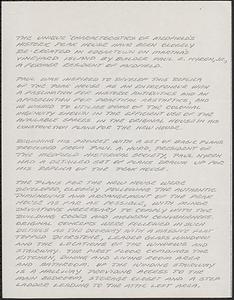 THE UNIQUE CHARACTERISTICS OF MEDFIELD'S
HISTORIC PEAK HOUSE HAVE BEEN CLOSELY
RE-CREATED IN EDGARTOWN ON MARTHA'S
VINEYARD ISLAND BY BUILDER PAUL E. NYREN, JR.,
A FORMER RESIDENT OF MEDFIELD.
PAUL WAS INSPIRED TO DEVELOP THIS REPLICA
OF THE PEAK HOUSE AS AN EXPERIENCE WITH
A FASCINATION FOR WESTERN ANTIQUITIES AND AN
APPRECIATION FOR PRACTICAL AESTHETICS, AND
HE WISHED TO UTILIZE SOME OF THE COLONIAL
INGENUITY SHOWN IN THE EFFICIENT USE OF THE
AVAILABLE SPACES IN THE ORIGINAL HOUSE IN HIS
CONSTRUCTION PLANS FOR THE NEW HOUSE.
BEGINNING HIS PURSUIT WITH A SET OF BASIC PLANS
PROCURED FROM PAUL A. HURD, PRESIDENT OF
THE MEDFIELD HISTORICAL SOCIETY, PAUL NYREN
HAD A DETAILED SET OF PLANS DRAWN UP FOR
HIS REPLICA OF THE PEAK HOUSE.
THE PLANS FOR THE NEW HOUSE WERE
DEVELOPED, CLOSELY FOLLOWING THE AUTHENTIC
DIMENSIONS AND ARRANGEMENT OF THE PEAK
HOUSE AS FAR AS POSSIBLE, WITH MINOR
DEVIATIONS NECESSARY TO COMPLY WITH THE
BUILDING CODES AND MODERN CONVENIENCES.
ORIGINAL CONCEPTS WERE FOLLOWED IN SUCH
DETAILS AS THE DOORWAY WITH A MASSIVE FLAT
TOPPED CORNICE, LEADED GLASS WINDOWS
AND THE LOCATIONS OF THE WINDOWS AND
STAIRWAY. THE FIRST FLOOR COMBINES THE
KITCHEN, DINING AND LIVING ROOM AREA
AND BATHROOM. UP THE WINDING STAIRWAY
IS A HALLWAY PROVIDING ACCESS TO THE
MAIN BEDROOM, STORAGE CLOSET AND A STEP
LADDER LEADING TO THE ATTIC LOFT AREA.